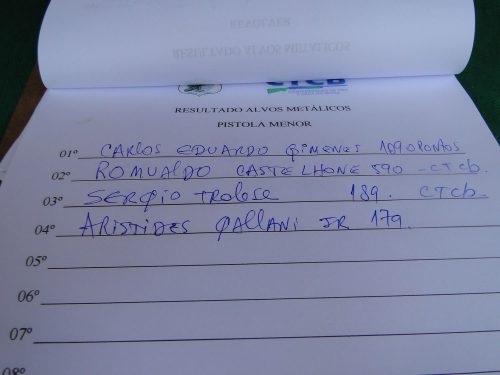 REVOLVER
RESULTADO ALVOS METÁLICOS
CTCB
RESULTADO ALVOS METÁLICOS
PISTOLA MENOR
01º CARLOS EDUARDO GIMENES 1090 PONTOS
02º ROMUALDO CASTELHONE 590 - CTCb.
03º SERGIO TROLESE 189. CTCb
04º ARISTIDES GALLANI JR 179.
05º
06º
07º
08º